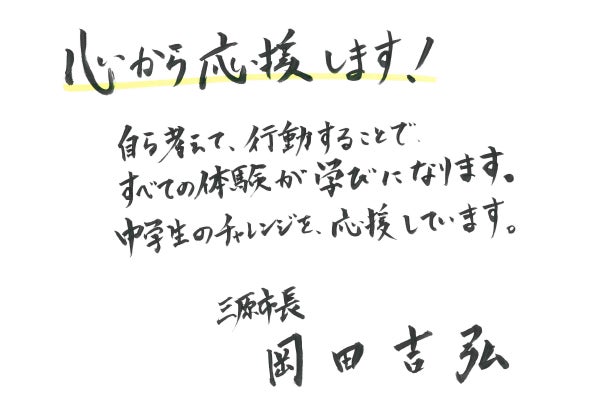 心から応援します!
自ら考えて、行動することで
すべての体験が学びになります。
中学生のチャレンジを、応援しています。
三原市長
岡田吉弘